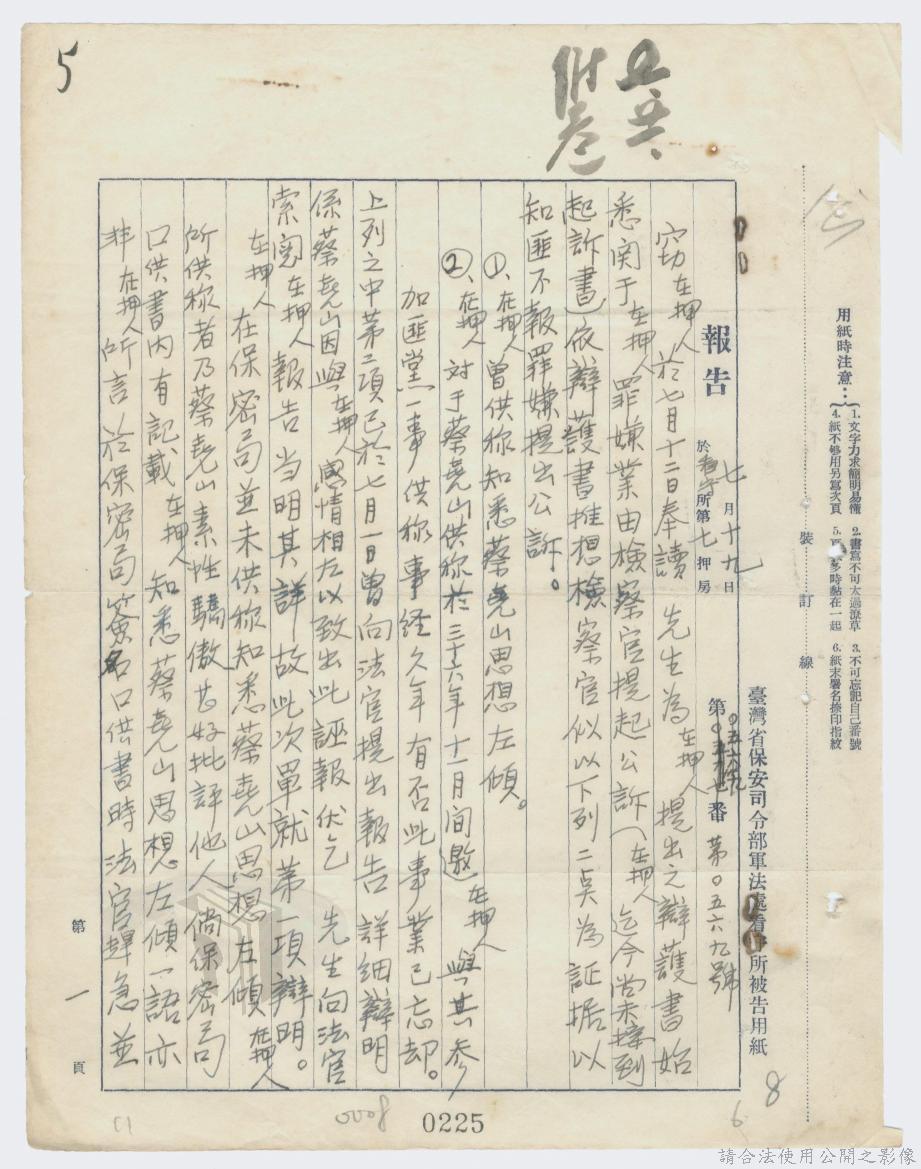 5
附卷
用紙時注意：
1.文字力求簡明易懂 2.書寫不可太過潦草 3.不可忘記自己番號
4.紙不够用另寫次頁 5.時黏在一起 6.紙末署名捺印指紋
裝訂線
臺灣省保安司令部軍法處看所被告用紙
報告 七月十九日
於看守所第七押房 第番 第〇五六九號
窃在押人於七月十二日奉讀 先生為在押人提出之辯護書始
悉関于在押人罪嫌業由檢察官提起公訴（在押人迄今尚未接到
起訴書）依辯護書推想檢察官似以下列二点為証据以
知匪不報罪嫌提出公訴。
①、在押人曾供称知悉蔡堯山思想左傾。
②、在押人對于蔡堯山供称於三十六年十一月間邀在押人與其參
加匪黨一事供称事経久年有否此事業已忘却。
上列之中第二項已於七月一日曽向法官提出報告詳細辯明
係蔡堯山因與在押人感情相左以致出此誣報伏乞 先生向法官
索閱在押人報告當明其詳故此次單就第一項辯明。
在押人在保密局並未供称知悉蔡堯山思想左傾在押人
所供称者乃蔡堯山素性驕傲甚好批評他人倘保密局
口供書内有記載在押人知悉蔡堯山思想左傾一語亦
非在押人所言於保密局簽名口供書時法官趕急並
第一頁
0008
0225
6
8
請合法使用公開之影像